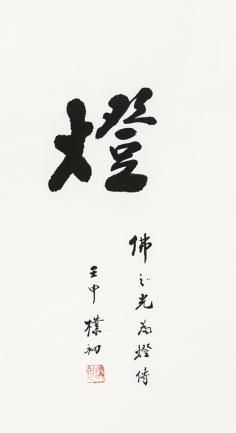 燈
佛之光為燈傳
壬申
樸初